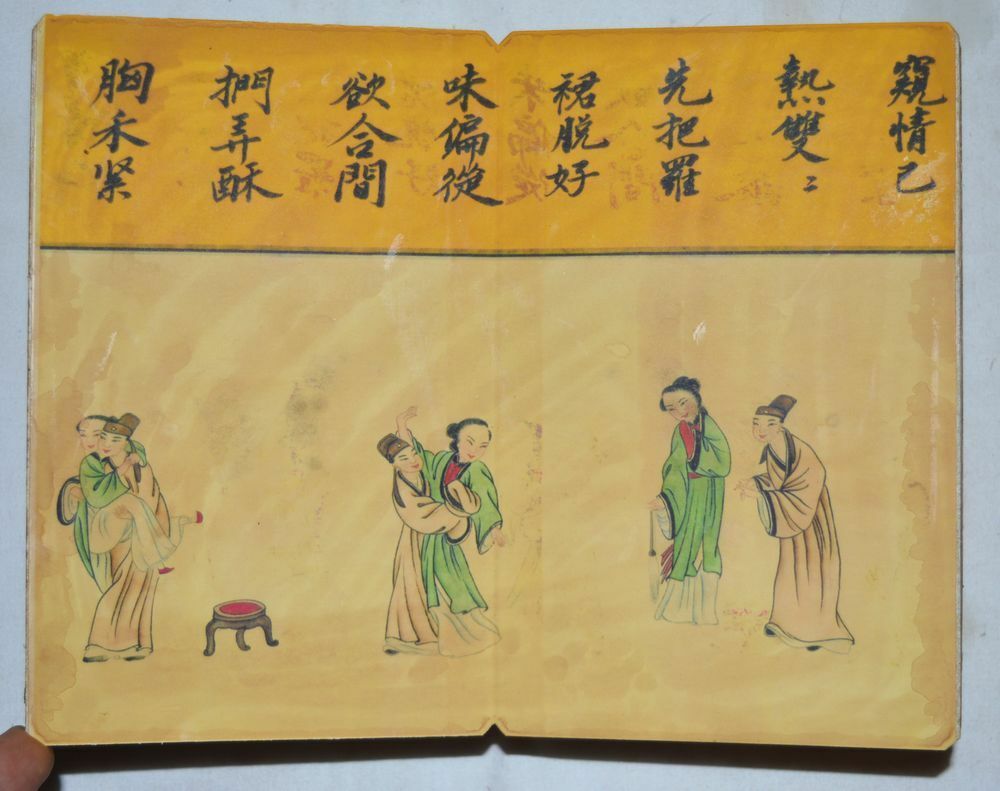 窺情已
熱雙〻
先把羅
裙脫好
味偏從
欲合間
捫弄酥
胸禾緊